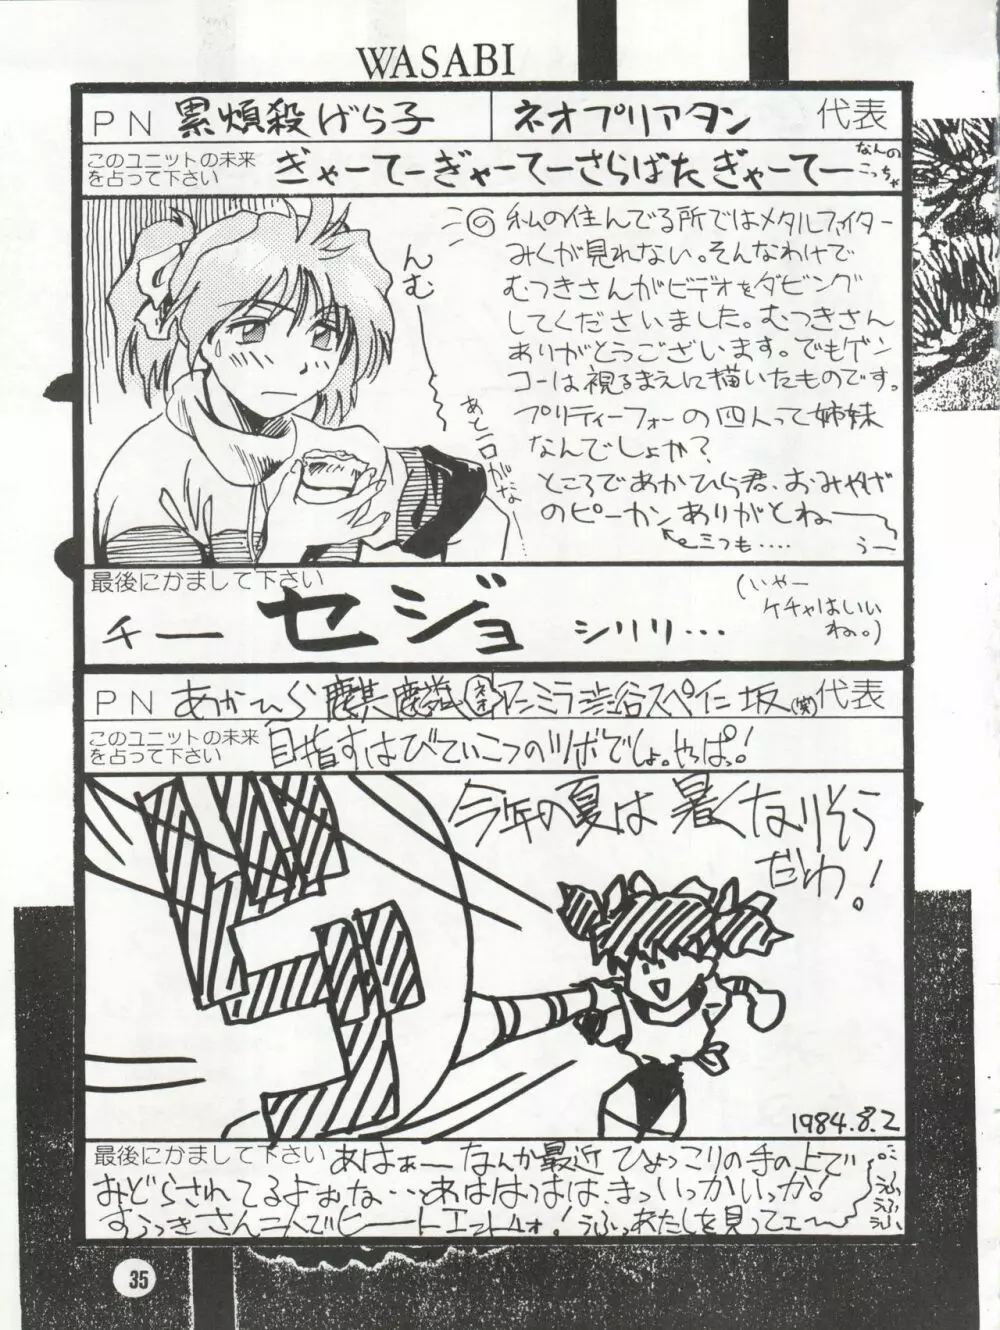 WASABI
PN 累煩殺げら子 ネオプリアタン 代表
このユニットの未来
を占って下さい
ぎゃーてーぎゃーてーさらばたぎゃーてー
なんの
こっちゃ
私の住んでる所ではメタルファイター
みくが見れない。そんなわけで
むつきさんがビデオをダビング
してくださいました。むつきさん
ありがとうございます。でもゲン
コーは視るまえに描いたものです。
プリティーフォーの四人って姉妹
なんでしょか?
ところであかひら君、おみやげ
のピーカンありがとねー
三つも....
うー
んむ
あと一口がな
最後にかまして下さい
チー セジョ シリリリ...
(いやー
ケチャはいい
ね。)
PN あかひら麒麟 アニミラ渋谷スペイン坂(笑)代表
このユニットの未来
を占って下さい
目指すはびていこつのツボでしょ。やっぱっ!
今年の夏は暑くなりそう
だわ!
1984.8.2
最後にかまして下さい
あはぁーなんか最近ひょっこりの手の上で
おどらされてるよぉな…
うふっ
うふふ
うふふ
35